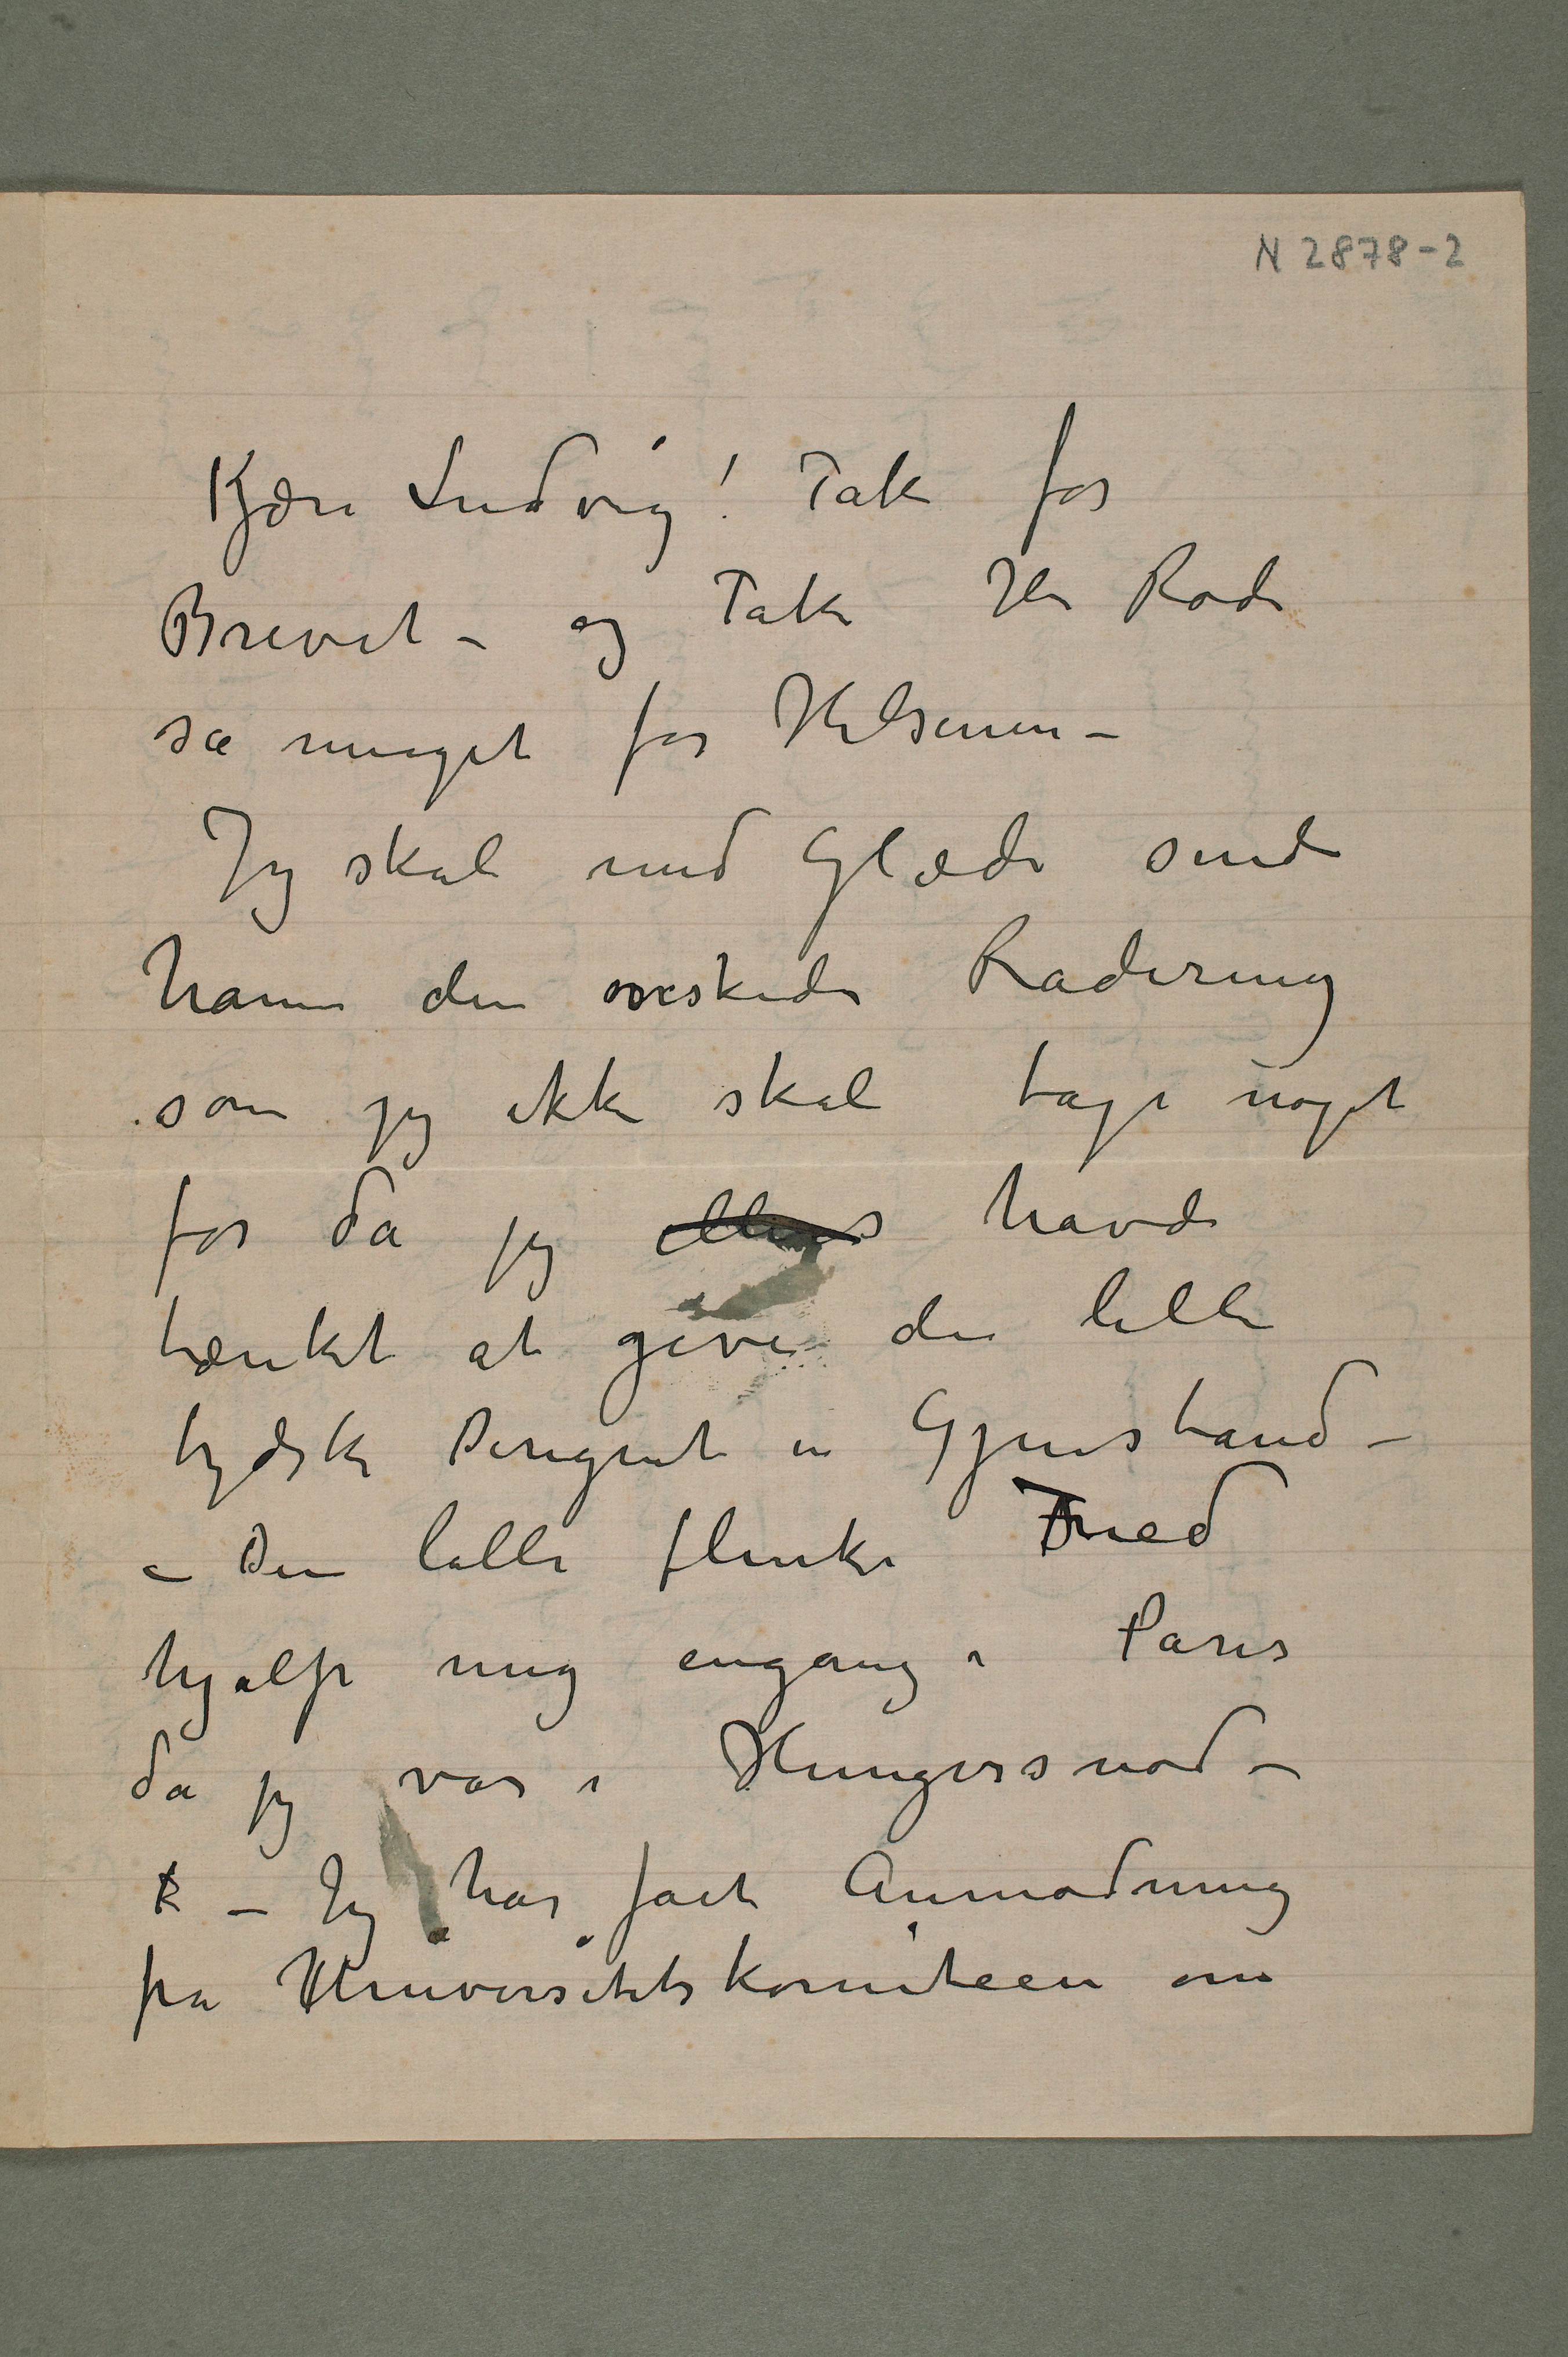 N 2878-2
Kjære Ludvig! Tak for
Brevet – og Tak Hr Rode
så meget for Hilsenen –
Jeg skal med Glæde sende
ham den ønskede Radering
som jeg ikke skal tage noget
for da jeg ellers havde
tænkt at give den lille
tydske Dirigent en Gjenstand –
– Den lille flinke
hjalp mig engang i Paris
da jeg var i Hungersnød –
– Jeg har fåt Anmodning
fra Universitetskomiteen om